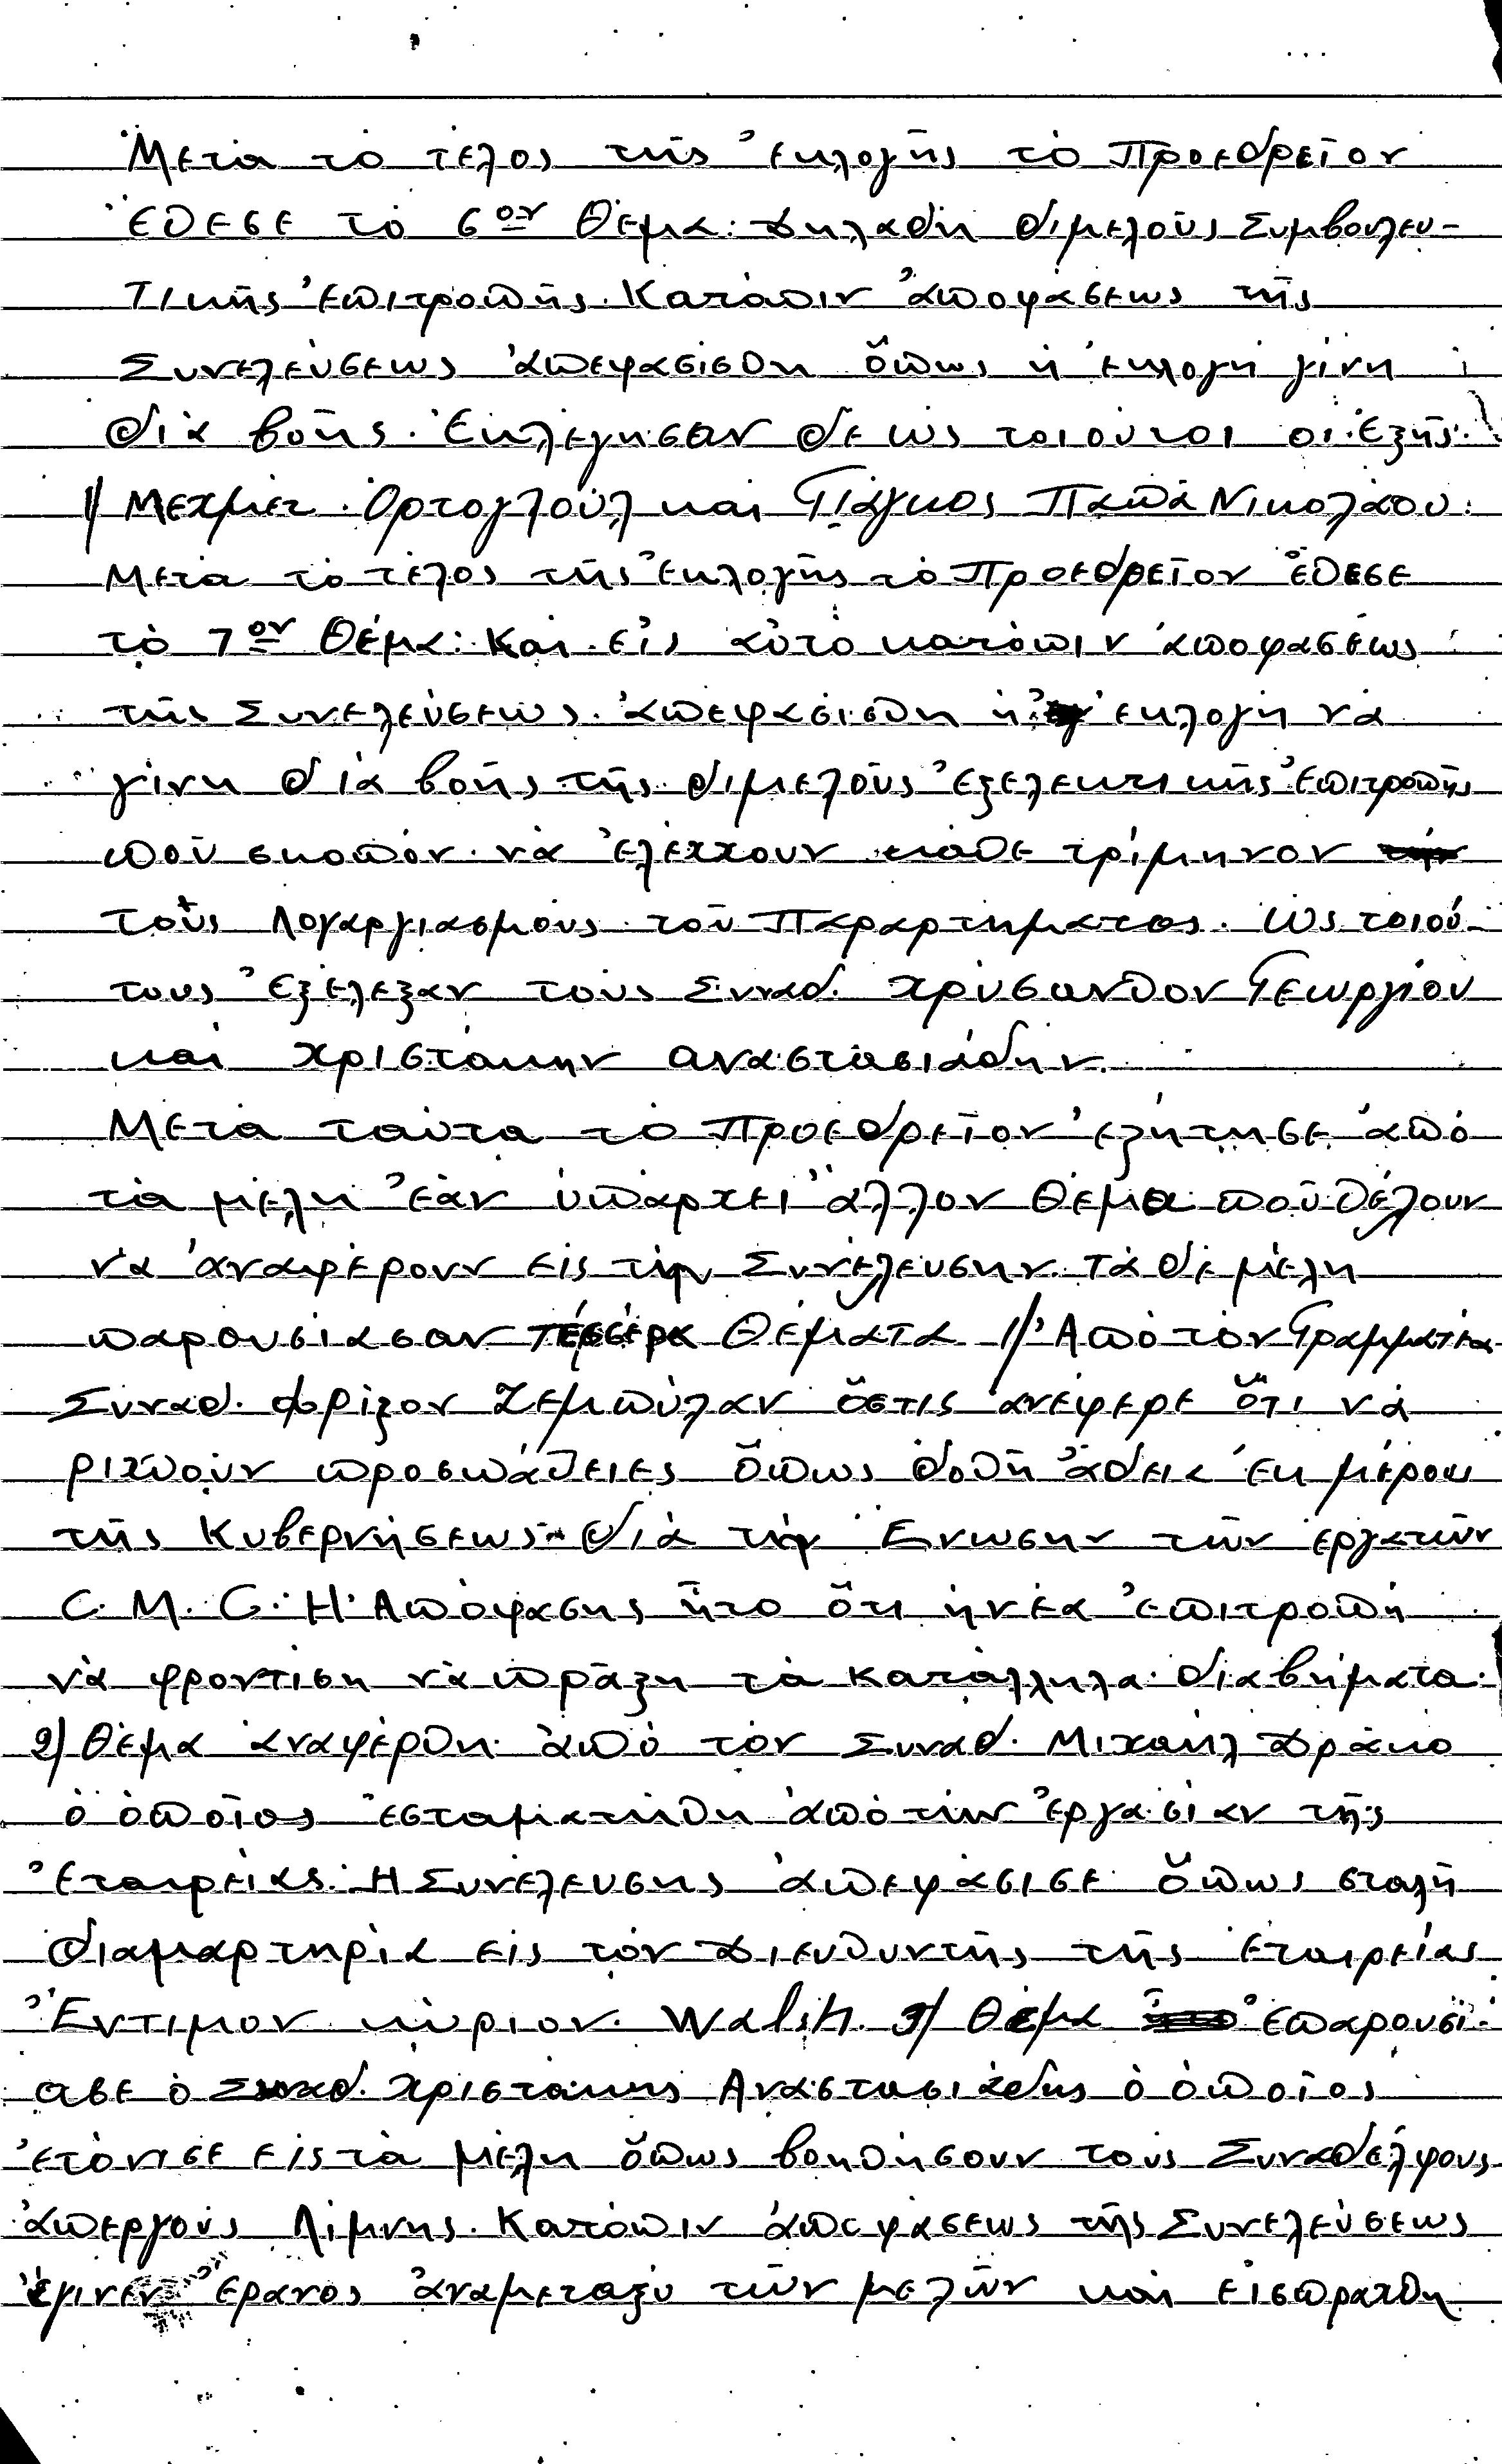 Μετά τό τέλος τῆς ἐκλογῆς τό Προεδρεῖον
ἔθεσε τό 6ον Θέμα: Δηλαδή διμελοῦς Συμβουλευ-
τικῆς ἐπιτροπῆς. Κατόπιν ἀποφάσεως τῆς
Συνελεύσεως ἀπεφασίσθη ὅπως ἡ ἐκλογή γίνη
διά βοῆς. Ἐκλέγησαν δέ ὡς τοιοῦτοι οἱ ἑξῆς.
1/ Μεχμέτ Ὀρτογλούλ καί Γιάγκος Παπά Νικολάου.
Μετά τό τέλος τῆς ἐκλογῆς τό Προεδρεῖον ἔθεσε
τό 7ον Θέμα: Καί εἰς αὐτό κατόπιν ἀποφάσεως
τῆς Συνελεύσεως ἀπεφασίσθη ἡ ἐκλογή νά
γίνη διά βοῆς τῆς διμελοῦς ἐξελεκτικῆς ἐπιτροπῆς
ποῦ σκοπόν νά ἐλέχχουν κάθε τρίμηνον
τούς Λογαργιασμούς τοῦ Παραρτήματος. Ὡς τοιού-
τους ἐξέλεξαν τούς Συναδ. Χρύσανθον Γεωργίου
καί Χριστάκην Αναστασιάδην.
Μετά ταῦτα τό Προεδρεῖον ἐζήτησε ἀπό
τά μέλη ἐάν ὑπάρχει ἄλλον Θέμα ποῦ θέλουν
νά ἀναφέρουν εἰς τήν Συνέλευσην. Τά δέ μέλη
παρουσίασαν τέσσερα Θέματα 1/ Ἀπό τόν Γραμματέα
Συναδ. Φρίξον Ζεμπύλαν ὅστις ἀνέφερε ὅτι νά
ριχθοῦν προσπάθειες ὅπως δοθῆ ἄδεια ἐκ μέρους
τῆς Κυβερνήσεως διά τήν Ἕνωσην τῶν ἐργατῶν
C. M. C. Ἡ Ἀπόφασης ἦτο ὅτι ἡ νέα ἐπιτροπή
νά φροντίση νά πράξη τά κατάλληλα διαβήματα.
2/ Θέμα ἀναφέρθη ἀπό τόν Συναδ. Μιχαήλ Δράκο
ὁ ὁποῖος ἐσταματήθη ἀπό τήν ἐργασίαν τῆς
ἑταιρείας. Ἡ Συνέλευσης ἀπεφάσισε ὅπως σταλῆ
διαμαρτηρία εἰς τόν Διευθυντής τῆς ἑταιρείας
Ἔντιμον κύριον Walsh. 3/ Θέμα ἐπαρουσί-
ασε ὁ Συναδ. Χριστάκης Ἀναστασιάδης ὁ ὁποῖος
ἐτόνισε εἰς τά μέλη ὅπως βοηθήσουν τούς Συναδέλφους
ἀπεργούς Λίμνης. Κατόπιν ἀποφάσεως τῆς Συνελεύσεως
ἔγινεν ἔρανος ἀναμεταξύ τῶν μελῶν καί εἰσπράχθη